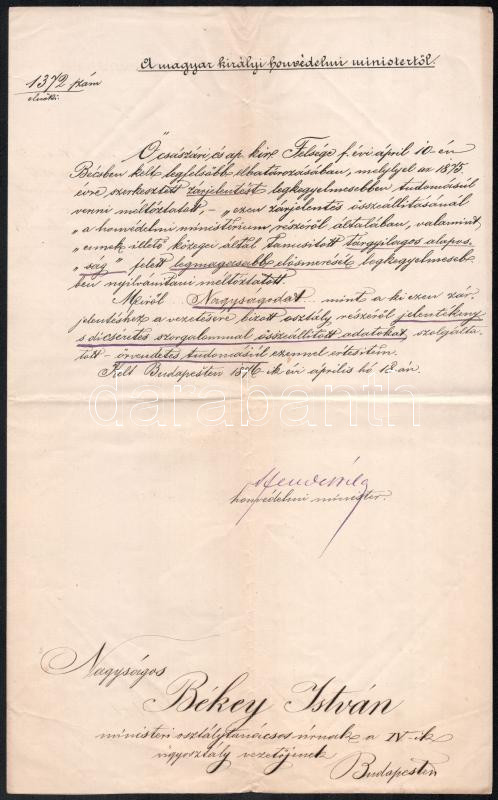 A magyar királyi honvédelmi ministertől.
1372 szám
elnöki.
Ő császári és ap. kir. Felsége f. évi április 10-én
Bécsben kelt legfelsőbb elhatározásában, melylyel az 1875
évre szerkesztett zárjelentést legkegyelmesebben tudomásúl
venni méltóztatott, – „ezen zárjelentés összeállitásánál
„a honvédelmi ministérium részéről általában, valamint
„ennek illető közegei által tanusitott tárgyilagos alapos-
„ság" felett legmagasabb elösmerését legkegyelmeseb-
ben nyilvánitani méltóztatott.
Miről Nagyságodat mint a ki ezen zár-
jelentéshez a vezetésére bizott osztály részéről jelentékeny
s dicséretes szorgalommal összeállitott adatokat szolgálta-
tott – örvendetes tudomásúl ezennel értesitem.
Kelt Budapesten 1876-ik évi április hó 12-án.
honvédelmi minister.
Nagyságos
Békey István
ministeri osztálytanácsos úrnak a IV-ik
ügyosztály vezetőjének
Budapesten
darabanth